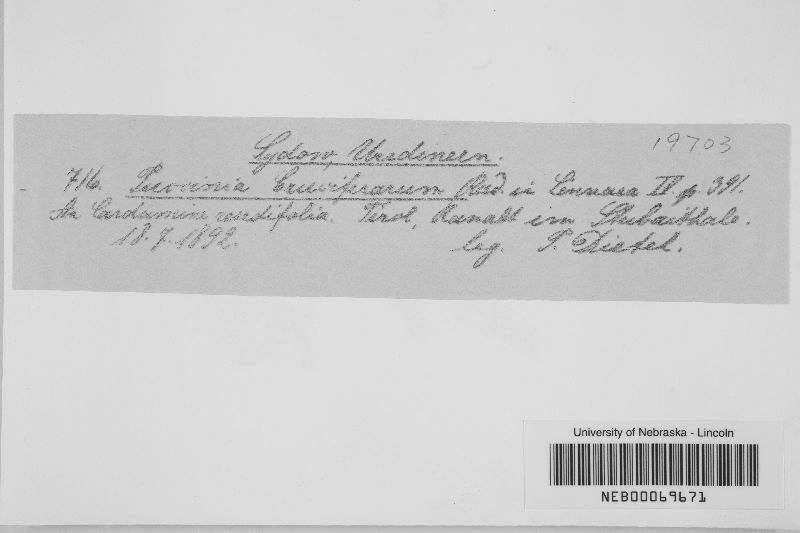 19703
Sydow, Uredineen.
716. Puccinia Cruciferarum Rud in Linnaea IV p 391.
An Cardamine resedifolia. Tirol, Ranalt im Stubaithale.
18.7.1892. leg. P. Dietel.
University of Nebraska - Lincoln
NEB00069671